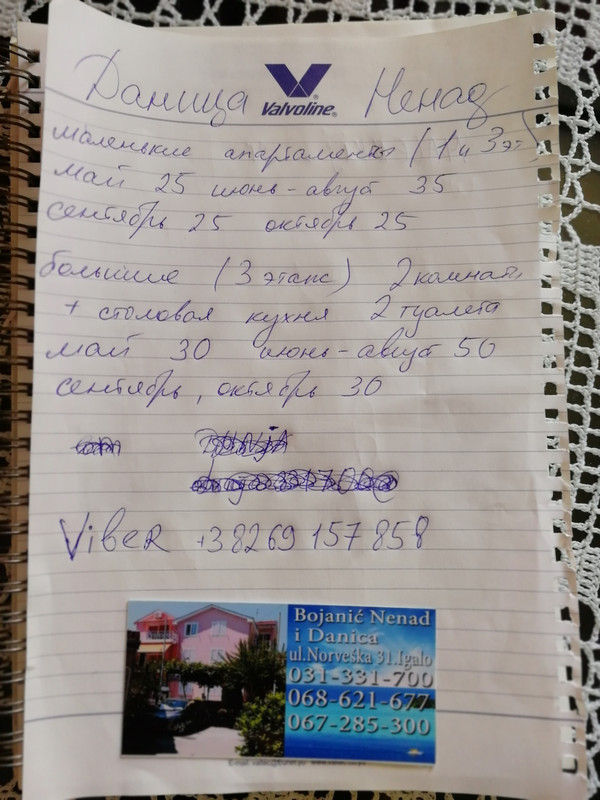 Даница Valvoline® Ненад
маленькие апартаменты (1 и 3 эт)
май 25 июнь-август 35
сентябрь 25 октябрь 25
большие (3 этапс) 2 комнаты
+ столовая кухня 2 туалета
май 30 июнь-август 50
сентябрь, октябрь 30
Viber +38269 157 858
Bojanić Nenad
i Danica
ul.Norveška 31.Igalo
031-331-700
068-621-677
067-285-300